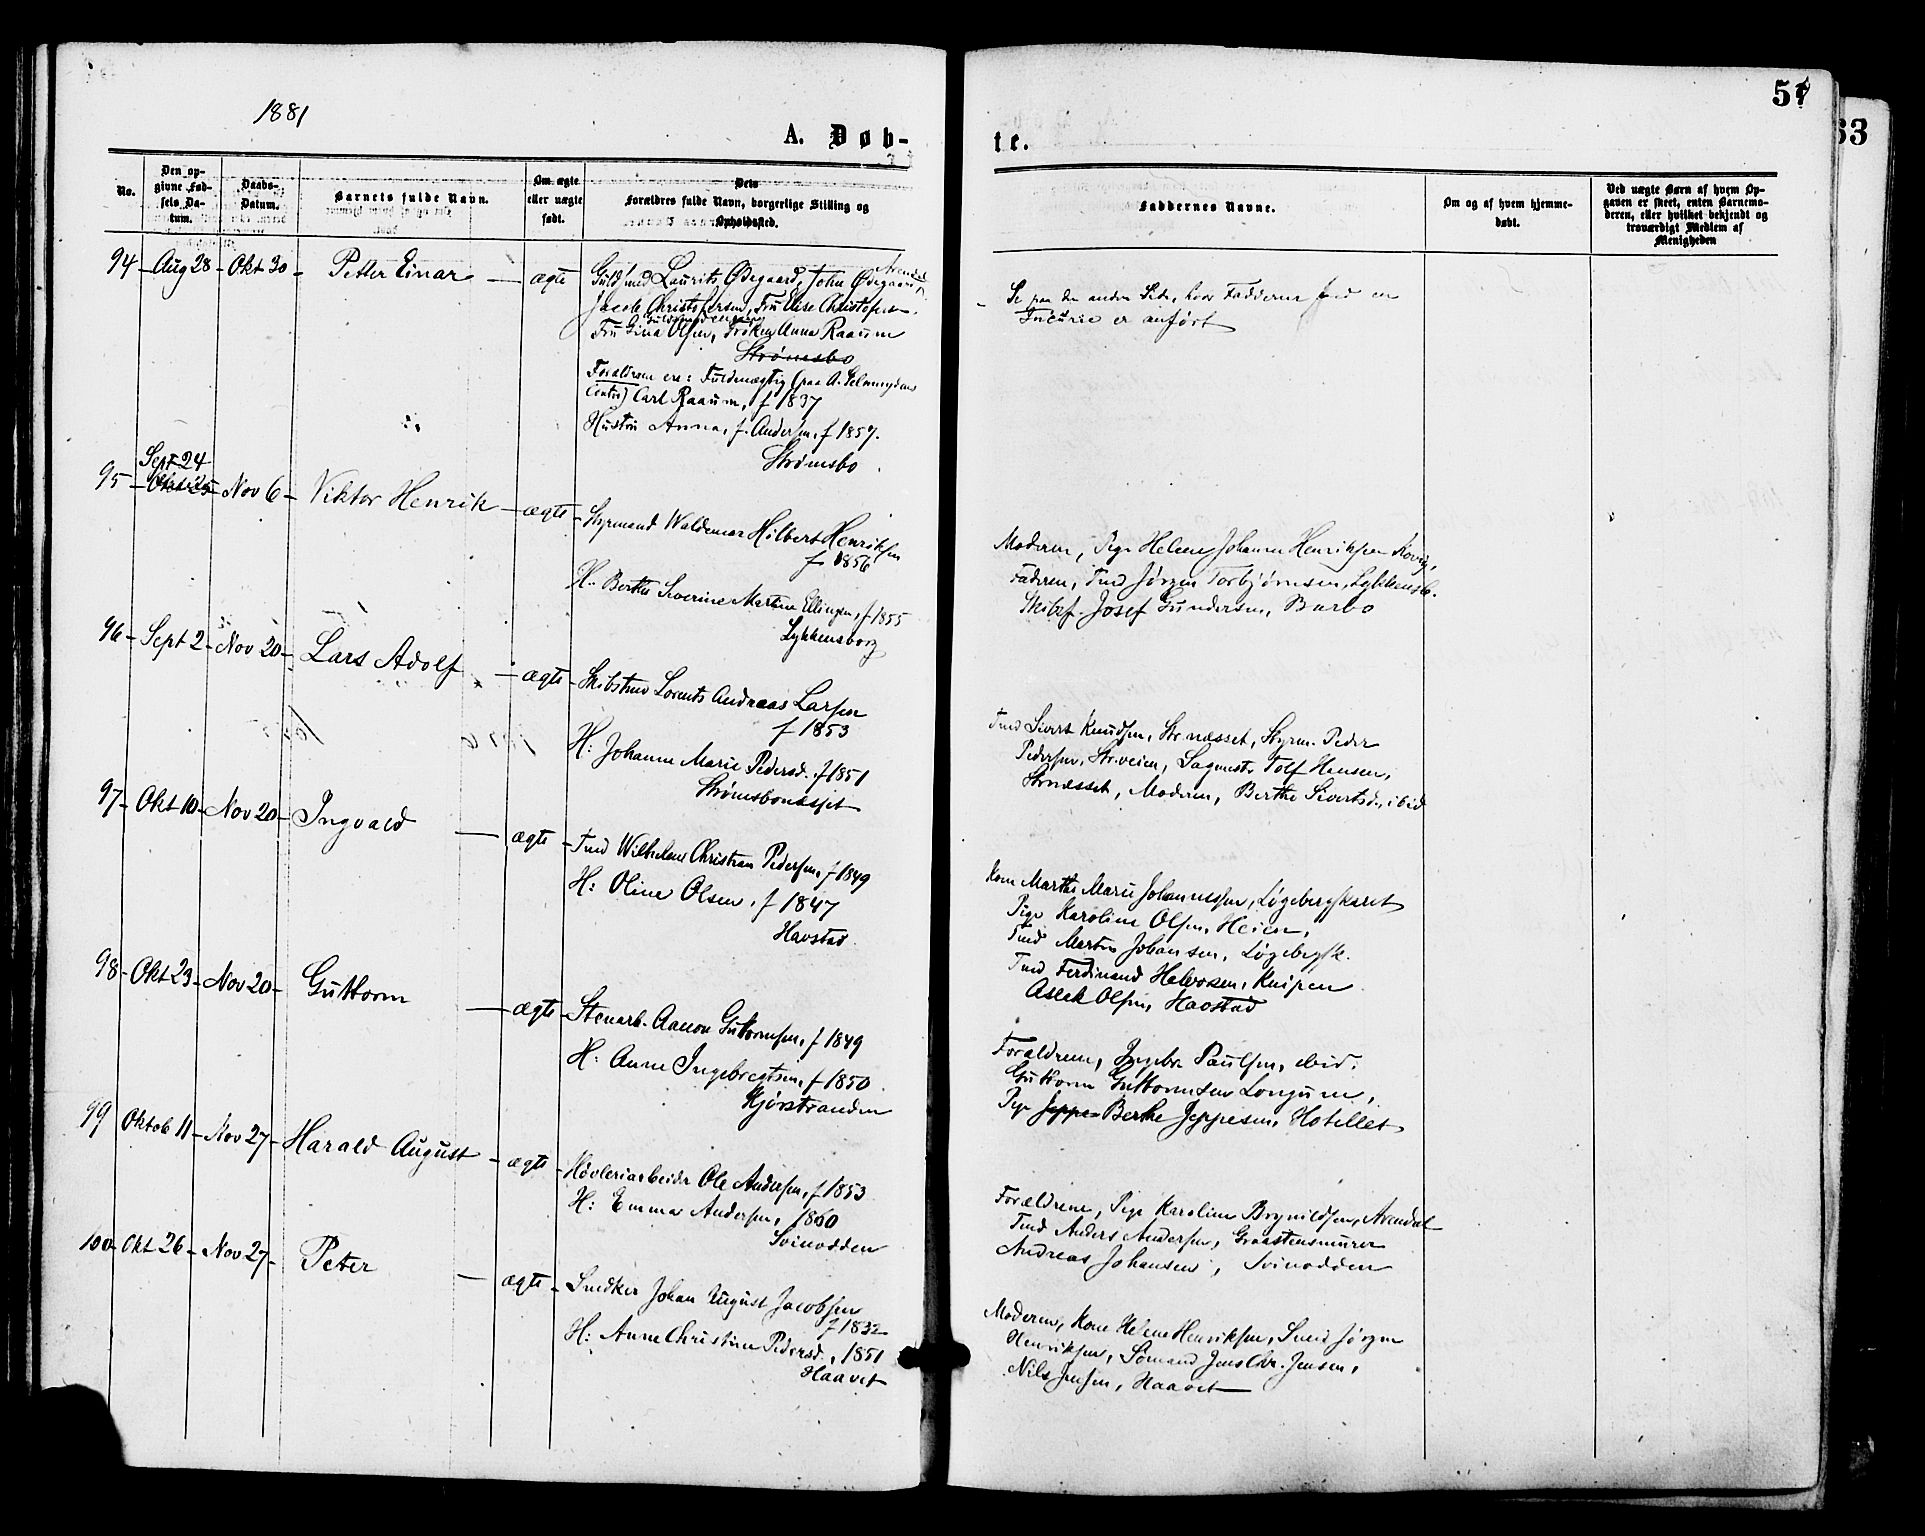 1881
A. Døb-
No.
Den op-
givne Fød-
sels Da-
tum.
Daabs-
Datum.
Barnets fulde Navn.
Om ægte
eller uægte
født.
Dets
Forældres fulde Navn, borgerlige Stilling og
Opholdssted.
94 - Aug 28 - Okt 30 - Petter Einar - ægte
Guldsmed Laurits Ødegaard, John Ødegaard, Arendal
Jacob Christophersen, Fru Elise Christofersen.
Fru Gina Olsen, Frøken Anna Raaum
Strømsbo
Forældrene ere: Fuldmægtig (paa A.
Contor) Carl Raaum, f 1837
Hustru Anna, f. Andersen, f 1857.
Strømsbo
Sept 24
95 - Nov 6 - Viktor Henrik - ægte - Styrmand Waldemar Hilbert Henriksen
f 1856
H: Berthe Severine Martine Ellingsen, f 1855
Lykkensborg
96 - Sept 2 - Nov 20 - Lars Adolf - ægte - Skibstmd Lorents Andreas Larsen
f 1853
H: Johanne Marie Pedersd. f 1851
Strømsbonæsset
97 - Okt 10 - Nov 20 - Ingvald - ægte - Tmd Wilhelm Christian Pedersen, f 1849
H: Oline Olsen, f 1847
Havstad
98 - Okt 23 - Nov 20 - Guttorm - ægte - Stenarb. Aanon Guttormsen, f 1849
H: Anne Ingebregtsen, f 1850
Kjørstranden
99 Oktob 11 - Nov 27 - Harald August - ægte - Høvleriarbeider Ole Andersen, f 1853
H: Emma Andersen, 1860
Svinodden
100 - Okt 26 - Nov 27 - Peter - ægte - Snedker Johan August Jacobsen
f 1832
H: Anne Christine Pedersd., 1851
Haavet
57
63
te.
Faddernes Navne.
Om og af hvem hjemme-
døbt.
Ved uægte Børn af hvem Op-
gaven er skeet, enten Barnemo-
deren, eller hvilket bekjendt og
troværdigt Medlem af
Menigheden
Se paa den anden Side, hvor Fadderne ved en
Incurie er anført
Moderen, Pige Helene Johanne Henriksen
Faderen, Tmd Jørgen Torbjørnsen, Lykkensb.
Skibsf. Josef Gundersen, Barbo
Tmd Sivert Knudsen, Str.næsset, Styrm. Peder
Pedersen, Str.veien, Sagmestr Tolf Hansen,
Strnæsset, Moderen, Berthe Sivertsd., ibid
Kone Marthe Marie Johannessen, Løgebergskaret
Pige Karoline Olsen, Heien,
Tmd Martin Johansen, Løgebergsk.
Tmd Ferdinand Halvorsen, Knipen
Aslak Olsen, Havstad
Forældrene, Ingebr. Paulsen, ibid.
Guttorm Guttormsen Longum,
Pige Jeppe Berthe Jeppesen, Hotellet
Forældrene, Pige Karoline Brynildsen, Arendal
Tmd Anders Andersen, Graastensmurer
Andreas Johansen, Svinodden
Moderen, Kone Helene Henriksen, Smed Jørgen
Henriksen, Sömand Jens Chr. Jensen,
Nils Jensen, Haavet